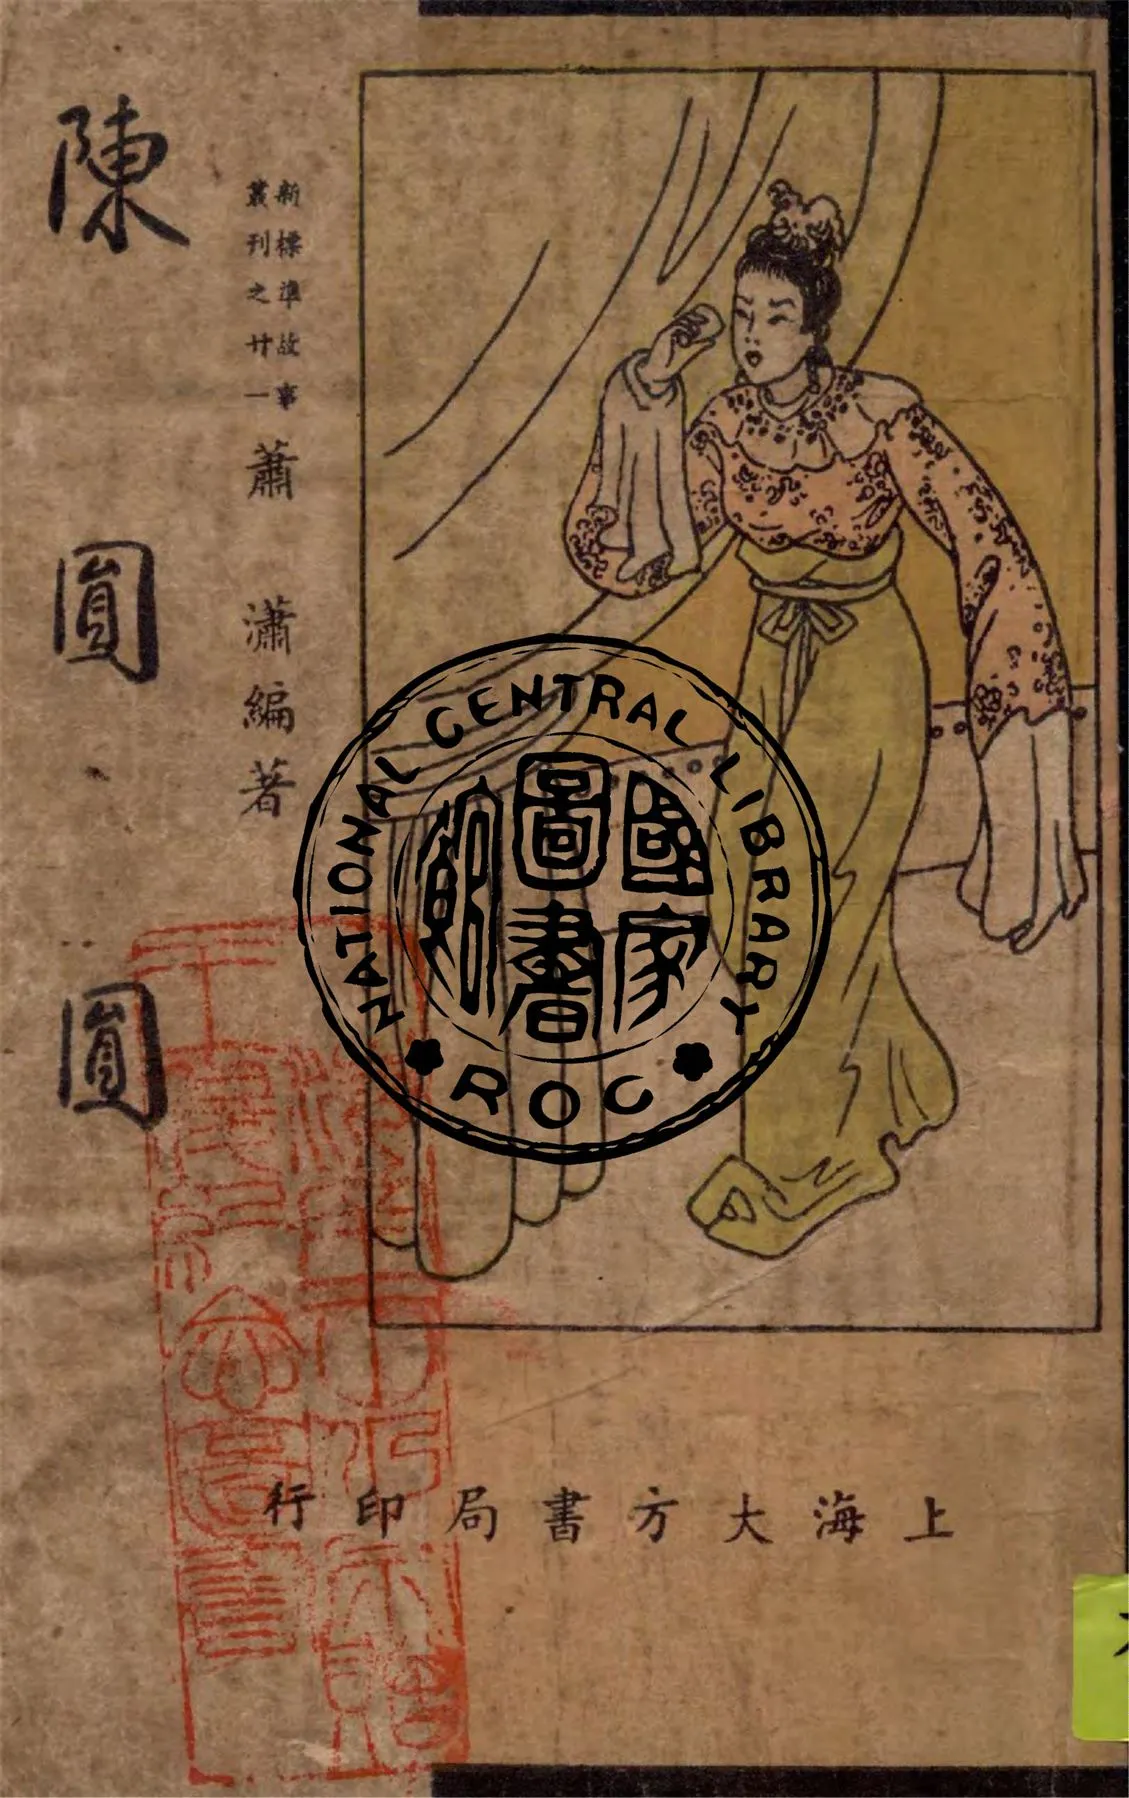 陳圓圓
新標準故事
叢刊之廿一
蕭瀟編著
上海大方書局印行
NATIONAL CENTRAL LIBRARY
國家圖書館
ROC